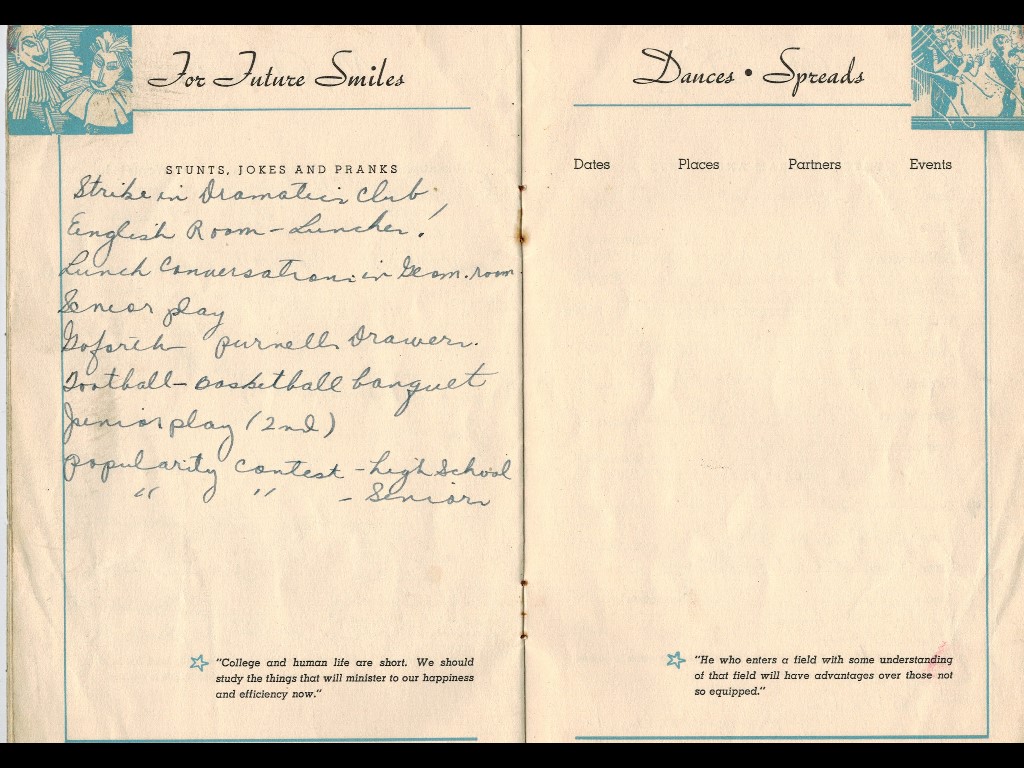 For Future Smiles
STUNTS, JOKES AND PRANKS
Strike in Dramatics Club
English Room - Lunches!
Lunch Conversations in Geom. room
Senior play
Goforth purnells Drawers.
Football - basketball banquet
Junior play (2nd)
popularity contest - high School
" " - Seniors
"College and human life are short. We should
study the things that will minister to our happiness
and efficiency now."
Dances • Spreads
Dates Places Partners Events
"He who enters a field with some understanding
of that field will have advantages over those not
so equipped."